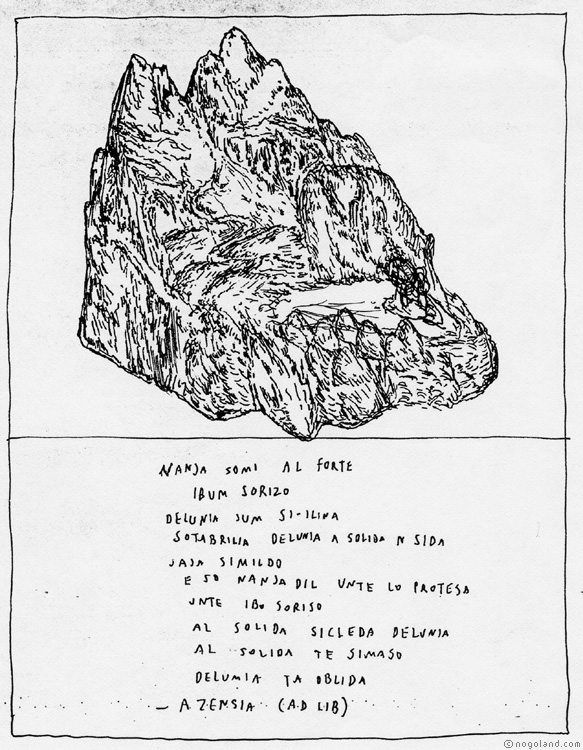 NANJA SOMI AL FORTE
IBUM SORIZO
DELUNIA SUM SI-ILINA
SOTABRILIA DELUNIA A SOLIDA N SIDA
JAJA SIMILDO
E SO NANJA DIL UNTE LO PROTESA
UNTE IBU SORISO
AL SOLIDA SICLEDA DELUNIA
AL SOLIDA TE SIMASO
DELUMIA TA OBLIDA
— AZENSIA (AD LIB)
© nogoland.com